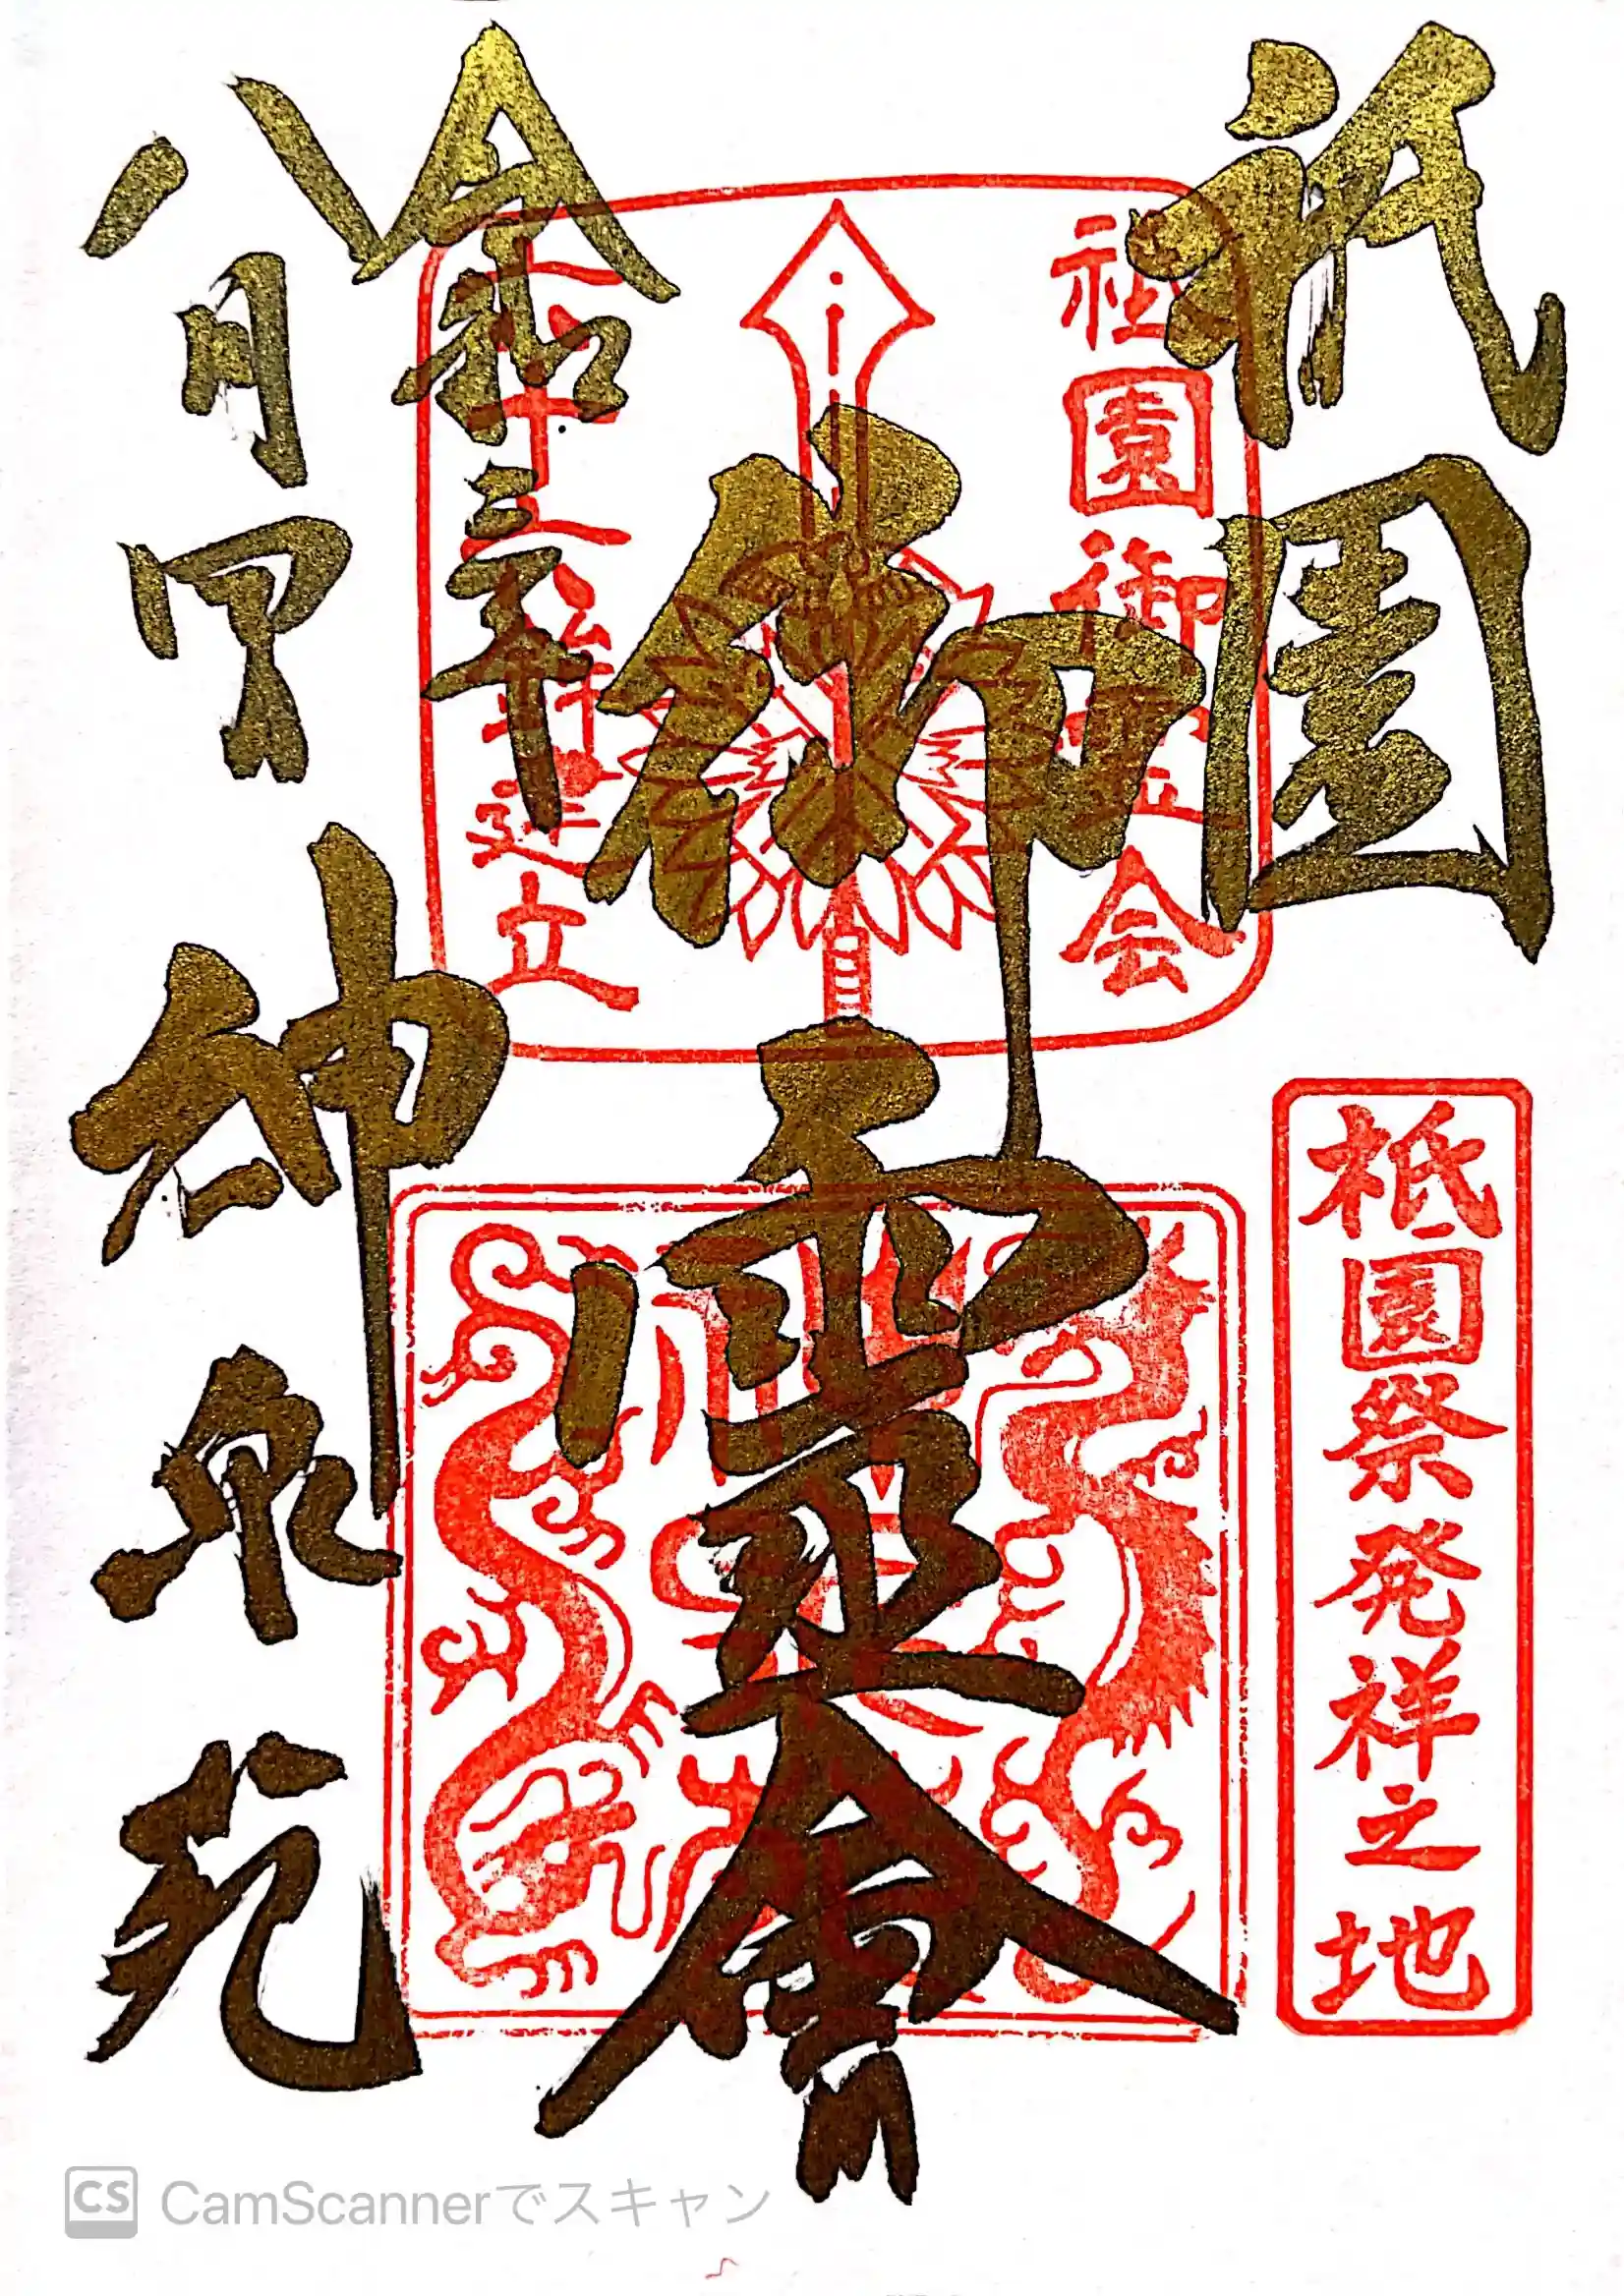 祇園
御霊會
令和三年
八月四日
神泉苑
祇園御霊会
六十六本鉾建立
祇園祭発祥之地
CS CamScannerでスキャン